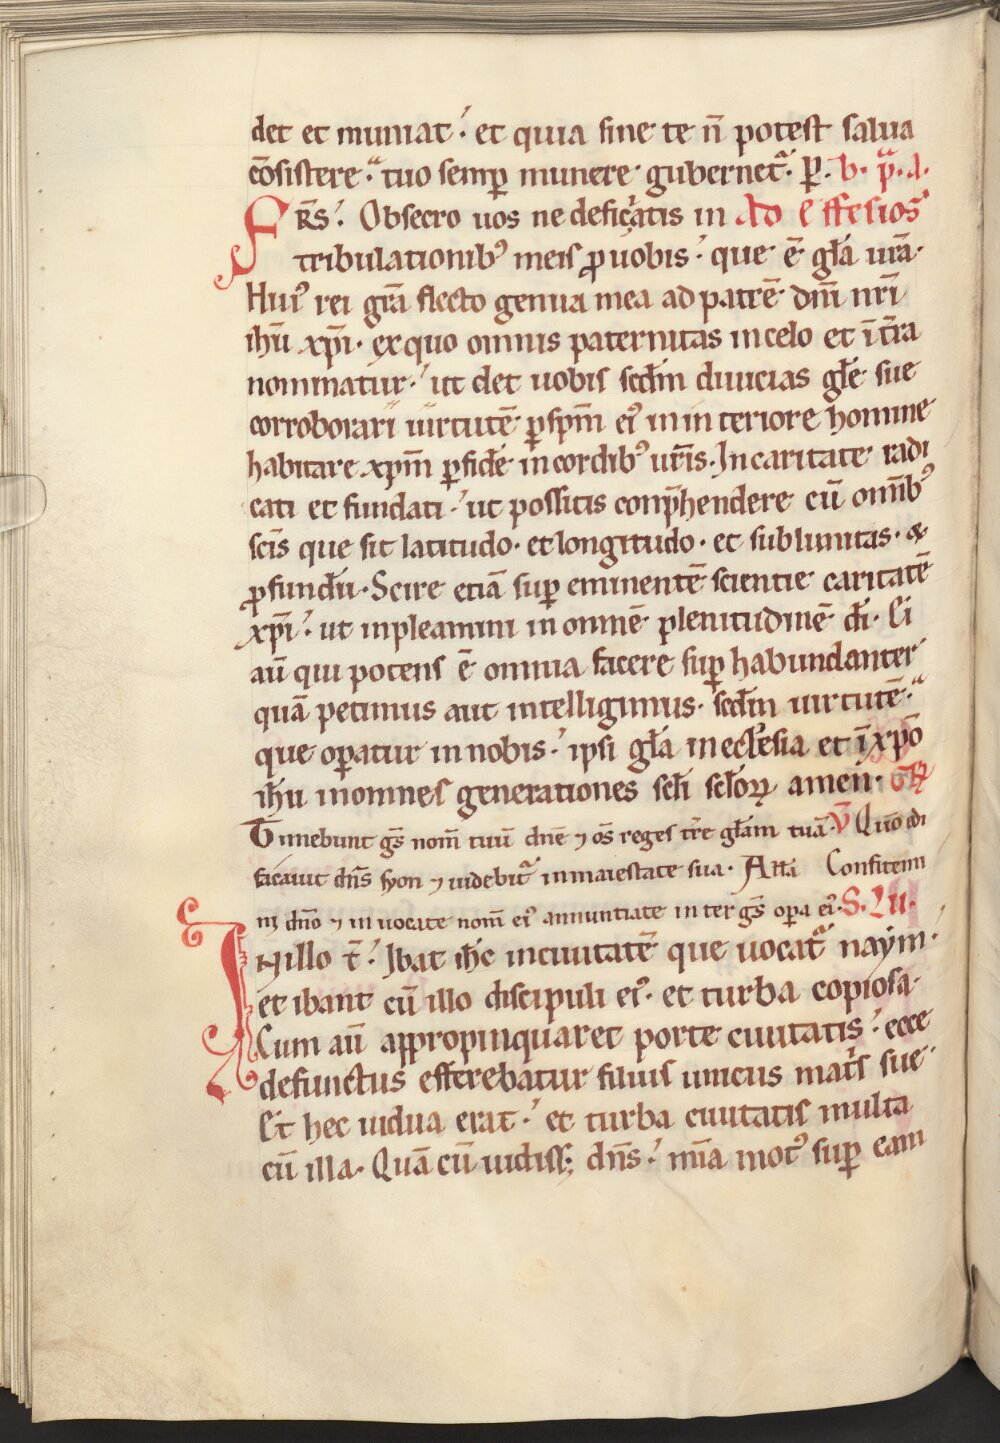 det et muniat· et quia sine te n̄ potest salua
cōsistere· tuo semꝑ munere gubernet᷑· ꝑ. b. p̄. a.
FR̄s· Obsecro uos ne deficiatis in Ad Effesios
tribulationibꝰ meis ꝓ uobis· que ē gl̄a ur̄a·
Huiꝰ rei gr̄a flecto genua mea ad patrē dn̄i nr̄i
ihū xp̄i· ex quo omnis paternitas in celo et ī t̄ra
nominatur· ut det uobis scdm̄ diuicias gl̄e sue
corroborari uirtutē ꝑ sp̄m eiꝰ in interiore homine
habitare xp̄m ꝑ fidē in cordibꝰ ur̄is· In caritate radi
cati et fundati· ut possitis conp̄hendere cū om̄ibꝰ
sc̄is que sit latitudo· et longitudo· et sublimitas· &
ꝓfundū· Scire etiā suꝑ eminentē scientie caritatē
xp̄i· ut inpleamini in omnē plenitudinē di̅· Ei
aū qui potens ē omnia facere suꝑ habundanter
quā petimus aut intelligimus· scdm̄ uirtutē·
que oꝑatur in nobis· ipsi gl̄a in ecl̄esia et ī xp̄o
ihū in omnes generationes scl̄i scl̄oꝝ amen· GR̄
Timebunt gs̄ nom̄ tuū dn̄e ⁊ os̄ reges tr̄e gl̄am tuā· V̄ Quō edi
ficauit dn̄s syon ⁊ uidebit᷑ in maiestate sua· All̄a Confitemi
ni dn̄o ⁊ inuocate nom̄ eiꝰ annuntiate inter gs̄ oꝑa eiꝰ· S. Lu.
IN illo t̄· Ibat ih̄c in ciuitatē que uocat᷑ naym·
et ibant cū illo discipuli eiꝰ· et turba copiosa·
Cum aū appropinquaret porte ciuitatis· ecce
defunctus efferebatur filius unicus mat̄s sue·
Et hec uidua erat· et turba ciuitatis multa
cū illa· Quā cū uidiss; dn̄s· mīa motꝰ suꝑ eam